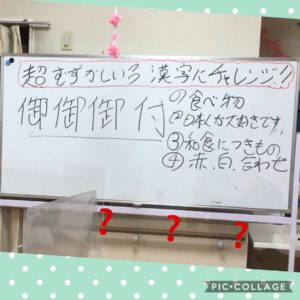 超むずかしいろ漢字にチャレンジ!!
御御御付
①食べ物
②日本人が大好きです。
③和食につきもの
④赤、白、合わせ
? ? ?
PIC•COLLAGE